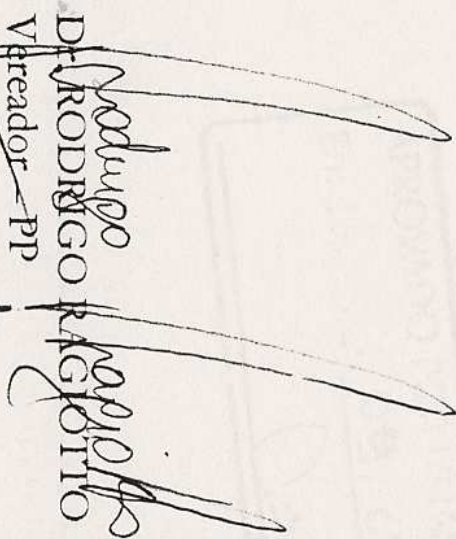 Dr. RODRIGO RAGIOTTO
Vereador - PP